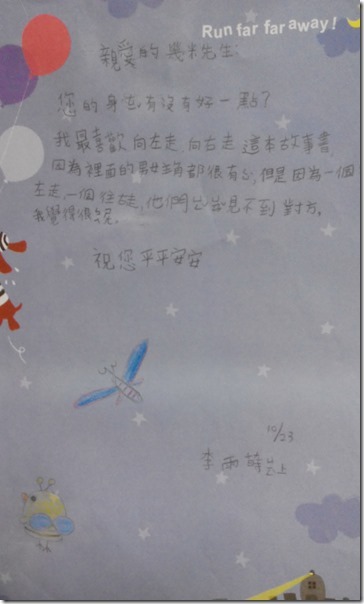 Run far far away!
親愛的幾米先生:
您的身有沒有好一點?
我最喜歡向左走向右走這本故事書
因為裡面的男女主角都很有心,但是因為一個
左走,一個往右走,他們見不到對方,
我覺得很
祝您平平安安
10/23
李雨 上